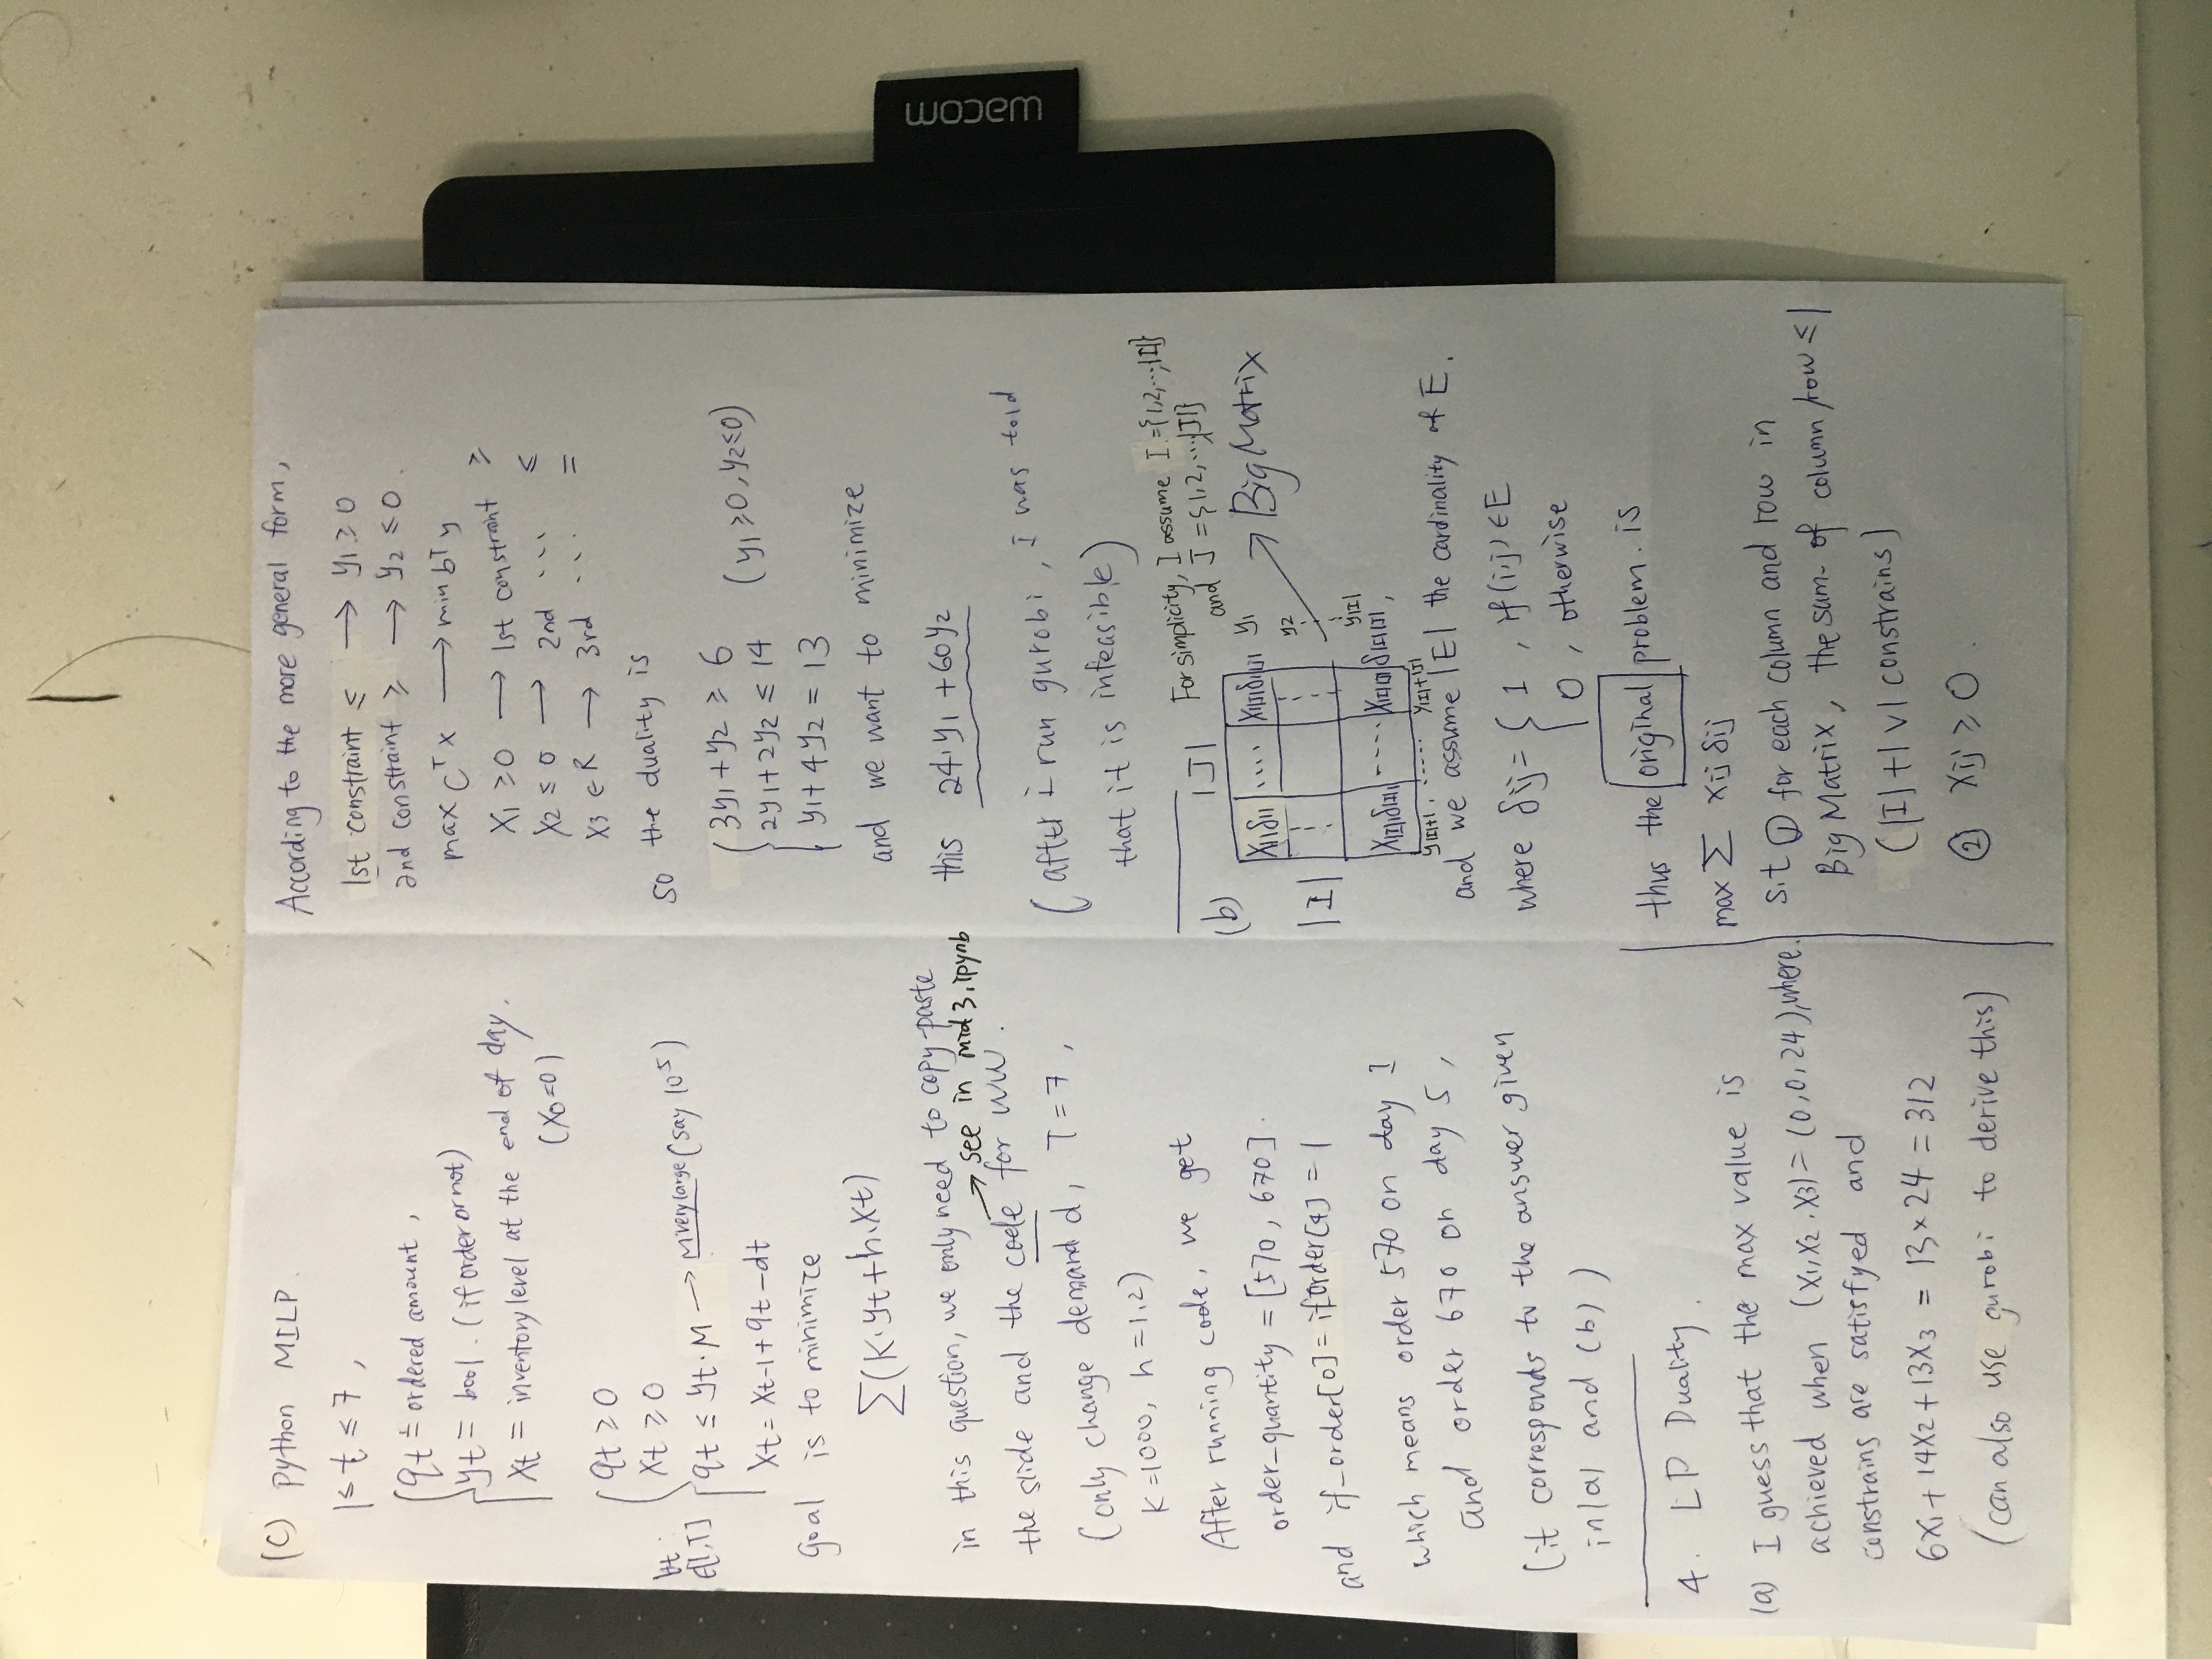 (C) python MILP.
1 ≤ t ≤ 7,
qt = ordered amount,
yt = bool. (if order or not)
xt = inventory level at the end of day.
(x0=0)
qt ≥ 0
xt ≥ 0
∀t ∈[1,T]
qt ≤ yt·M → M: very large (say 10^5)
xt = xt-1 + qt - dt
goal is to minimize
∑(K·yt + h·xt)
in this question, we only need to copy-paste
the slide and the code for WW.
→ see in mid3.ipynb
(only change demand d, T=7,
k=1000, h=1.2)
After running code, we get
order_quantity = [570, 670].
and if_order[0] = if order[4] = 1
which means order 570 on day 1
and order 670 on day 5,
(it corresponds to the answer given
in (a) and (b))
4. LP Duality.
(a) I guess that the max value is
achieved when (x1,x2,x3)=(0,0,24), where
constrains are satisfyed and
6x1+14x2+13x3 = 13×24 = 312
(can also use gurobi to derive this)
According to the more general form,
1st constraint ≤ → y1 ≥ 0
2nd constraint ≥ → y2 ≤ 0.
max C^T x → min b^T y
x1 ≥ 0 → 1st constraint ≥
x2 ≤ 0 → 2nd ... ≤
x3 ∈ R → 3rd ... =
so the duality is
3y1+y2 ≥ 6
2y1+2y2 ≤ 14 (y1≥0, y2≤0)
y1+4y2 = 13
and we want to minimize
this 24y1+60y2
(after i run gurobi, i was told
that it is infeasible)
(b) |J| For simplicity, I assume I={1,2,...,|I|}
and J={1,2,...,|J|}
|I| x11δ11 .... x1|J|δ1|J| y1
y2
x|I|1δ|I|1 ..... x|I||J|δ|I||J|, y|I|
y|I|+1, ..... y|I|+|J|
→ Big Matrix
and we assume |E| the cardinality of E.
where δij = { 1, if (i,j) ∈ E
0, otherwise
thus the original problem is
max ∑ xij δij
s.t ① for each column and row in
Big Matrix, the sum of column/row ≤ 1
(|I|+|V| constrains)
② xij ≥ 0.
wacom